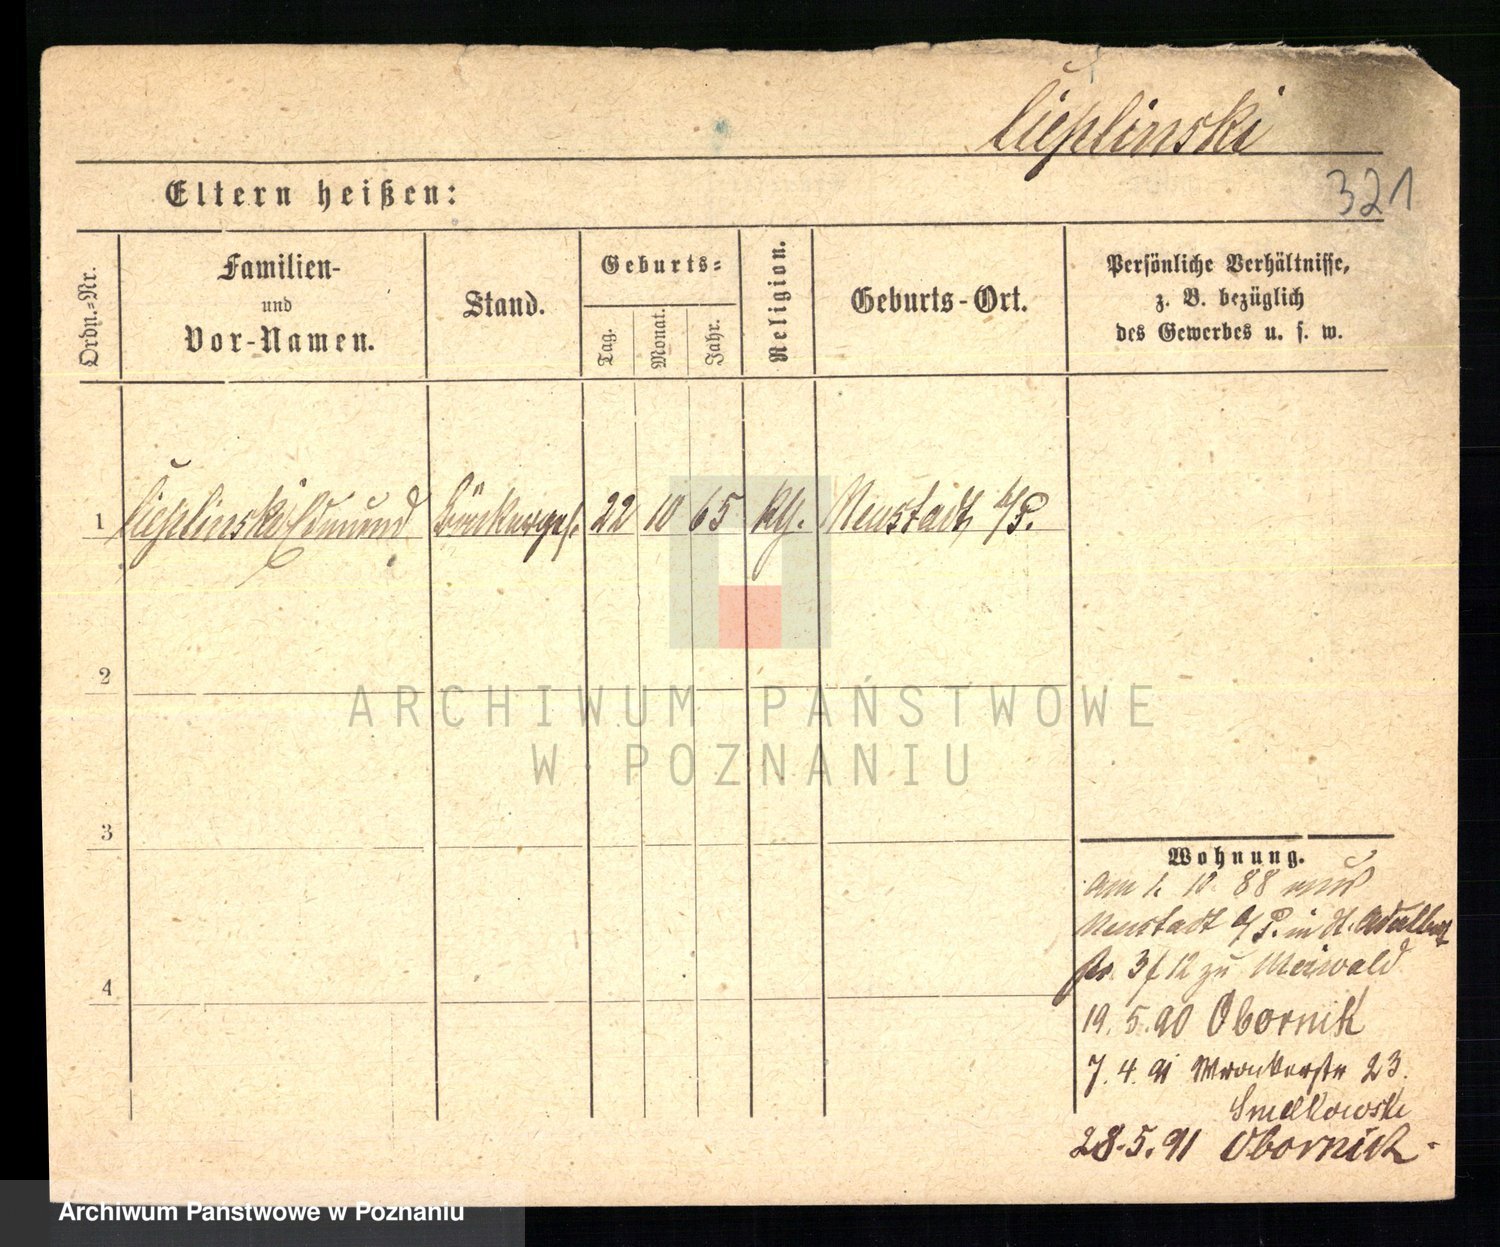 Cieplinski
Eltern heißen:
321
Ordn.-Nr.
Familien-
und
Vor-Namen.
Stand.
Geburts-
Tag.
Monat.
Jahr.
Religion.
Geburts-Ort.
Persönliche Verhältnisse,
z. B. bezüglich
des Gewerbes u. s. w.
1 Cieplinski Edmund 22 10 65 Neustadt a/P.
2
3
4
ARCHIWUM PAŃSTWOWE
W POZNANIU
Wohnung.
am 1. 10. 88 aus
Neustadt a/P. in St. Adalbert
str. 3 f 12 zu Meiwald
19. 5. 90 Obornik
7. 4. 91 Wronkerstr 23.
28. 5. 91 Obornick.
Archiwum Państwowe w Poznaniu